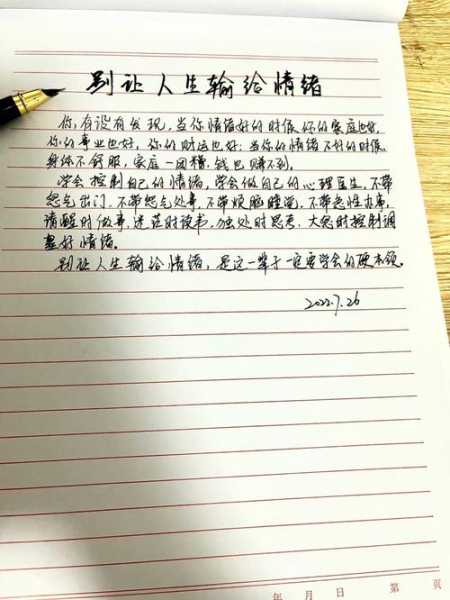 别让人生输给情绪
你有没有发现,当你情绪好的时候,你的家庭也好,
你的事业也好,你的财运也好;当你的情绪不好的时候,
身体不舒服,家庭一团糟,钱也赚不到。
学会控制自己的情绪,学会做自己的心理医生,不带
怒气出门,不带怨气处事,不带烦恼睡觉,不带急性办事,
清醒时做事,迷茫时读书,独处时思考,大怒时控制调
整好情绪。
别让人生输给情绪,是这一辈子一定要学会的硬本领。
2022.7.26
年 月 日 第 页